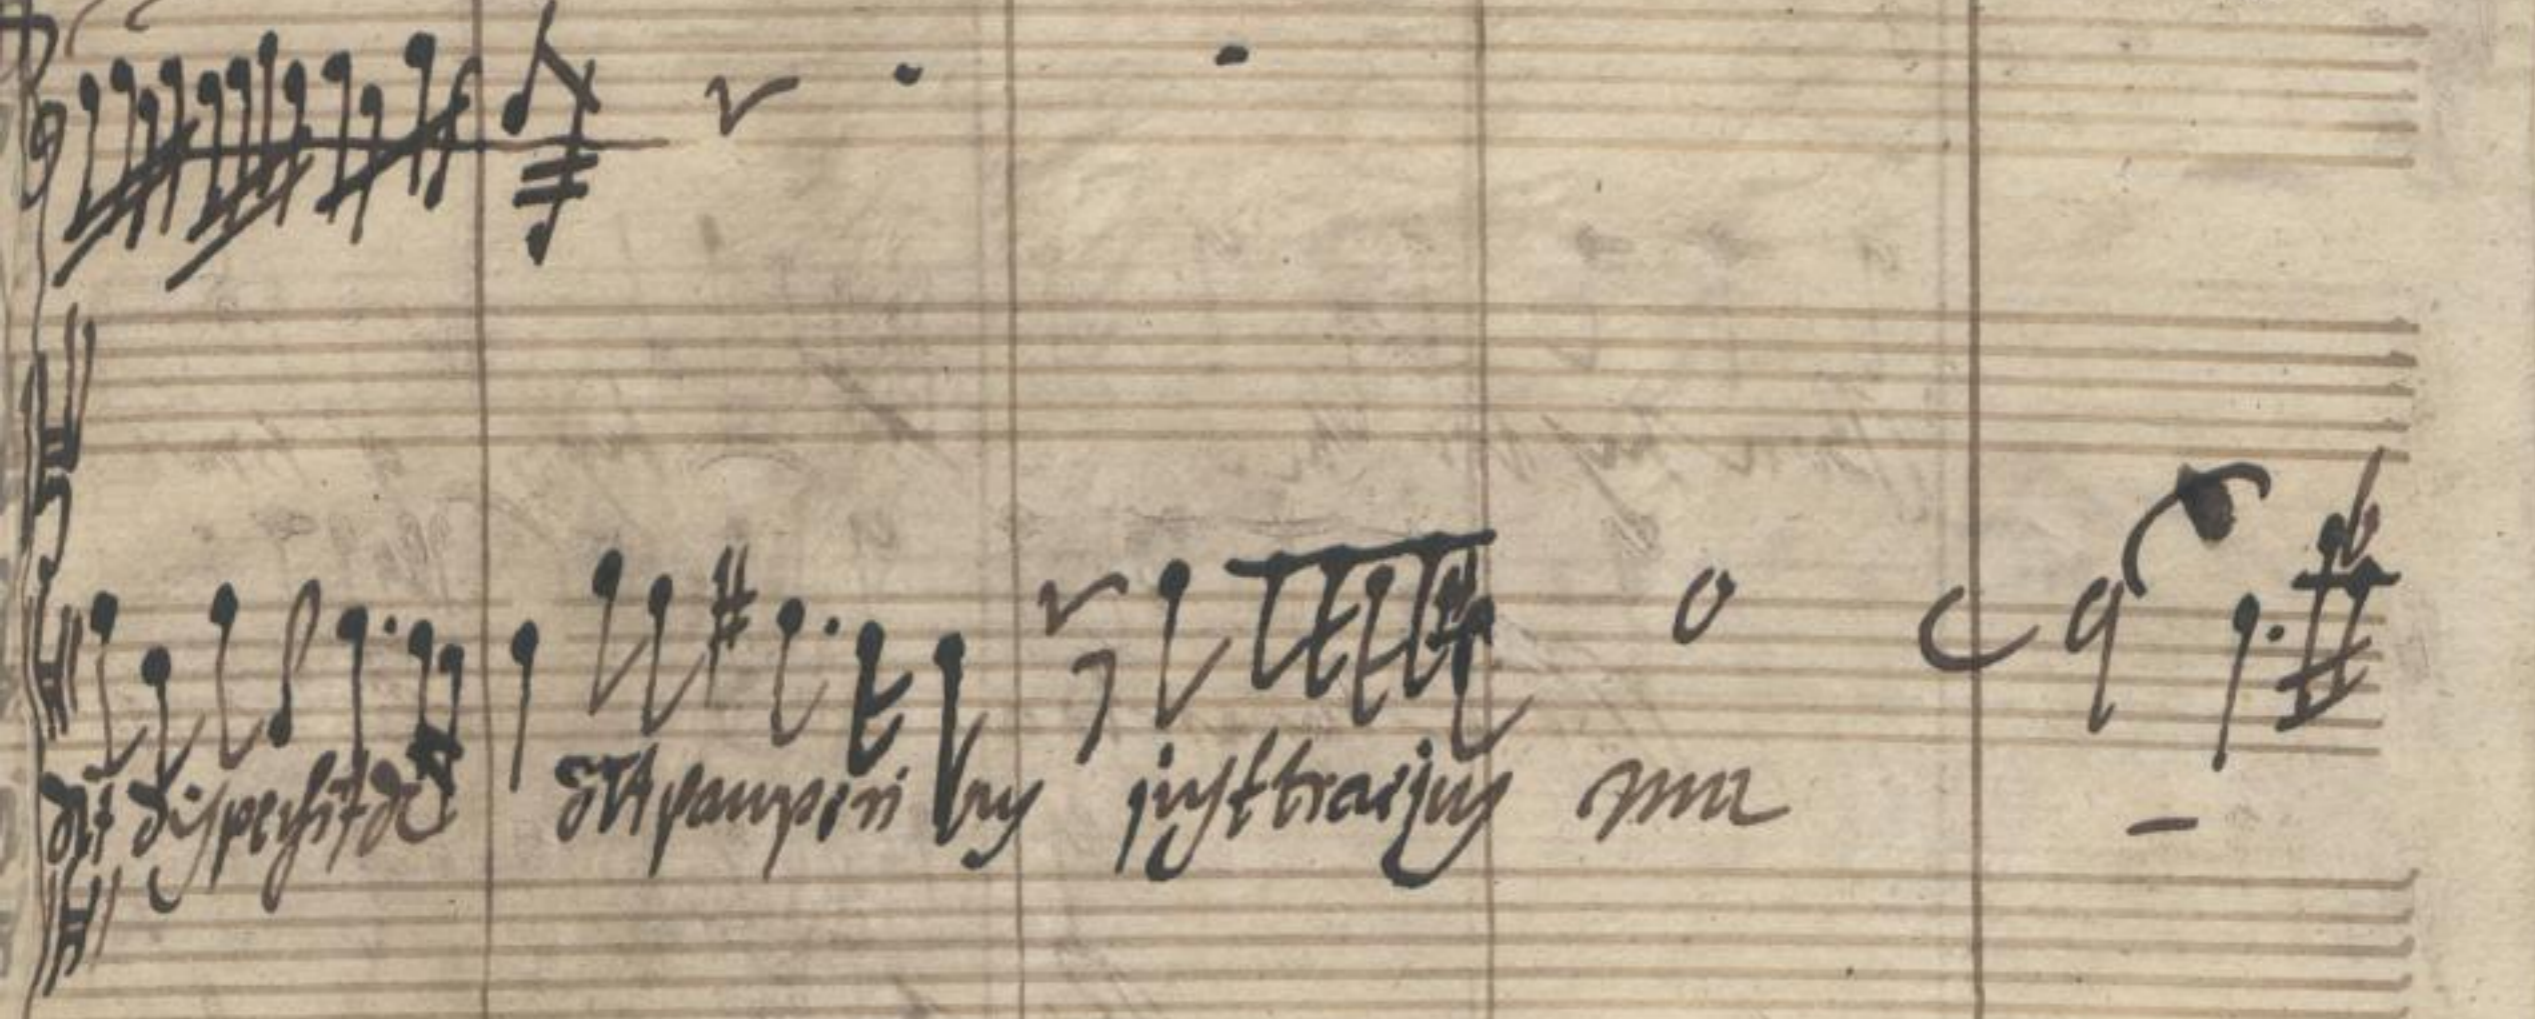 dit dispersit de dit pauperi bus justitia ejus ma